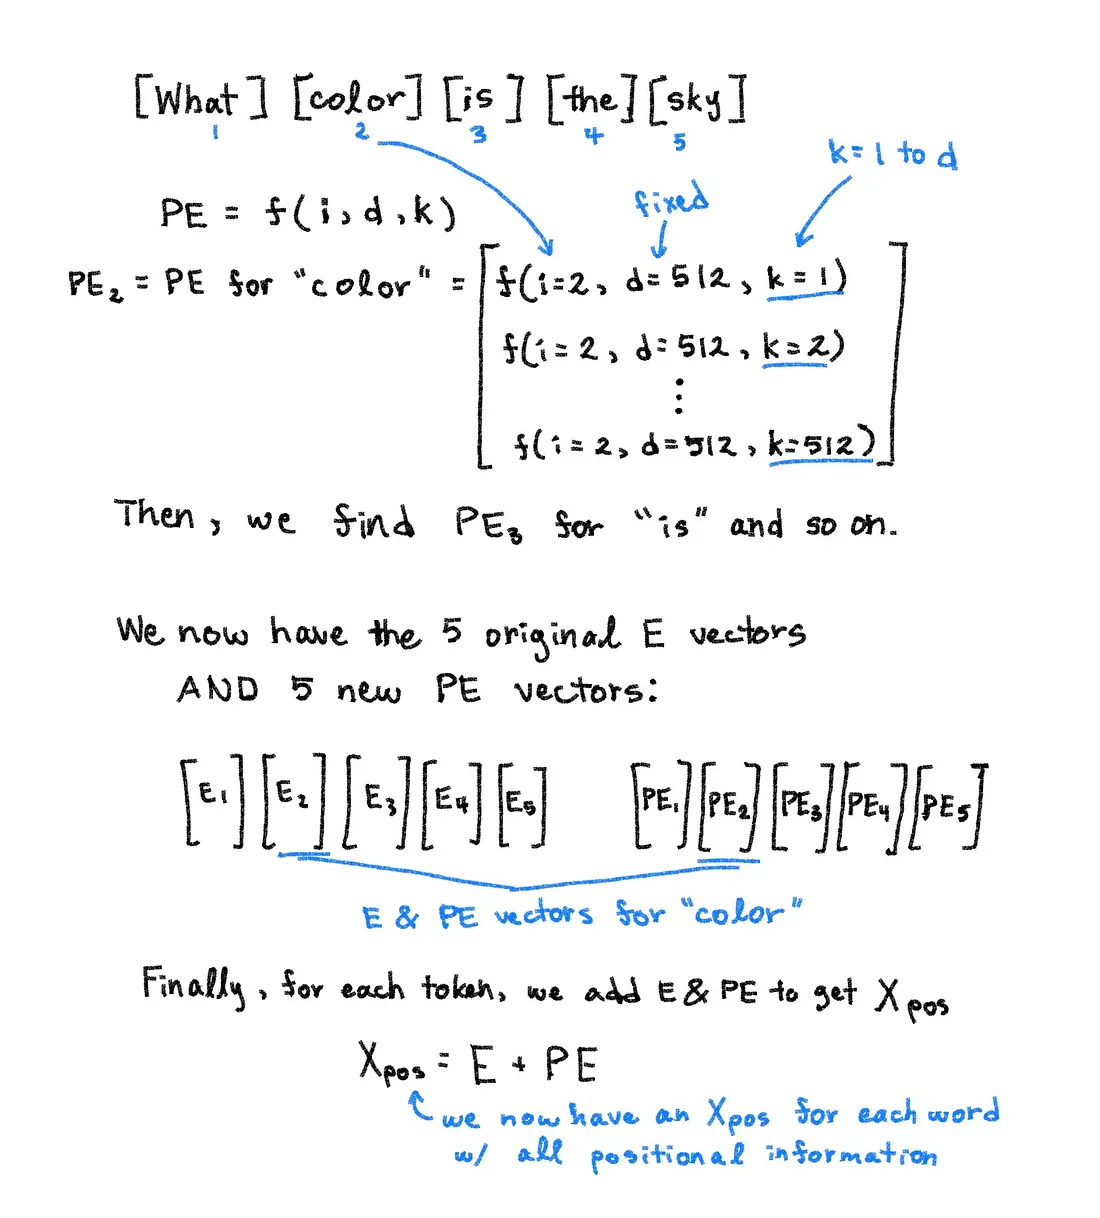 [What] [color] [is] [the] [sky]
1 2 3 4 5
k = 1 to d
fixed
PE = f(i, d, k)
PE₂ = PE for "color" = [f(i=2, d=512, k=1)
f(i=2, d=512, k=2)
⋮
f(i=2, d=512, k=512)]
Then, we find PE₃ for "is" and so on.
We now have the 5 original E vectors
AND 5 new PE vectors:
[E₁] [E₂] [E₃] [E₄] [E₅] [PE₁] [PE₂] [PE₃] [PE₄] [PE₅]
E & PE vectors for "color"
Finally, for each token, we add E & PE to get Xpos
Xpos = E + PE
we now have an Xpos for each word
w/ all positional information